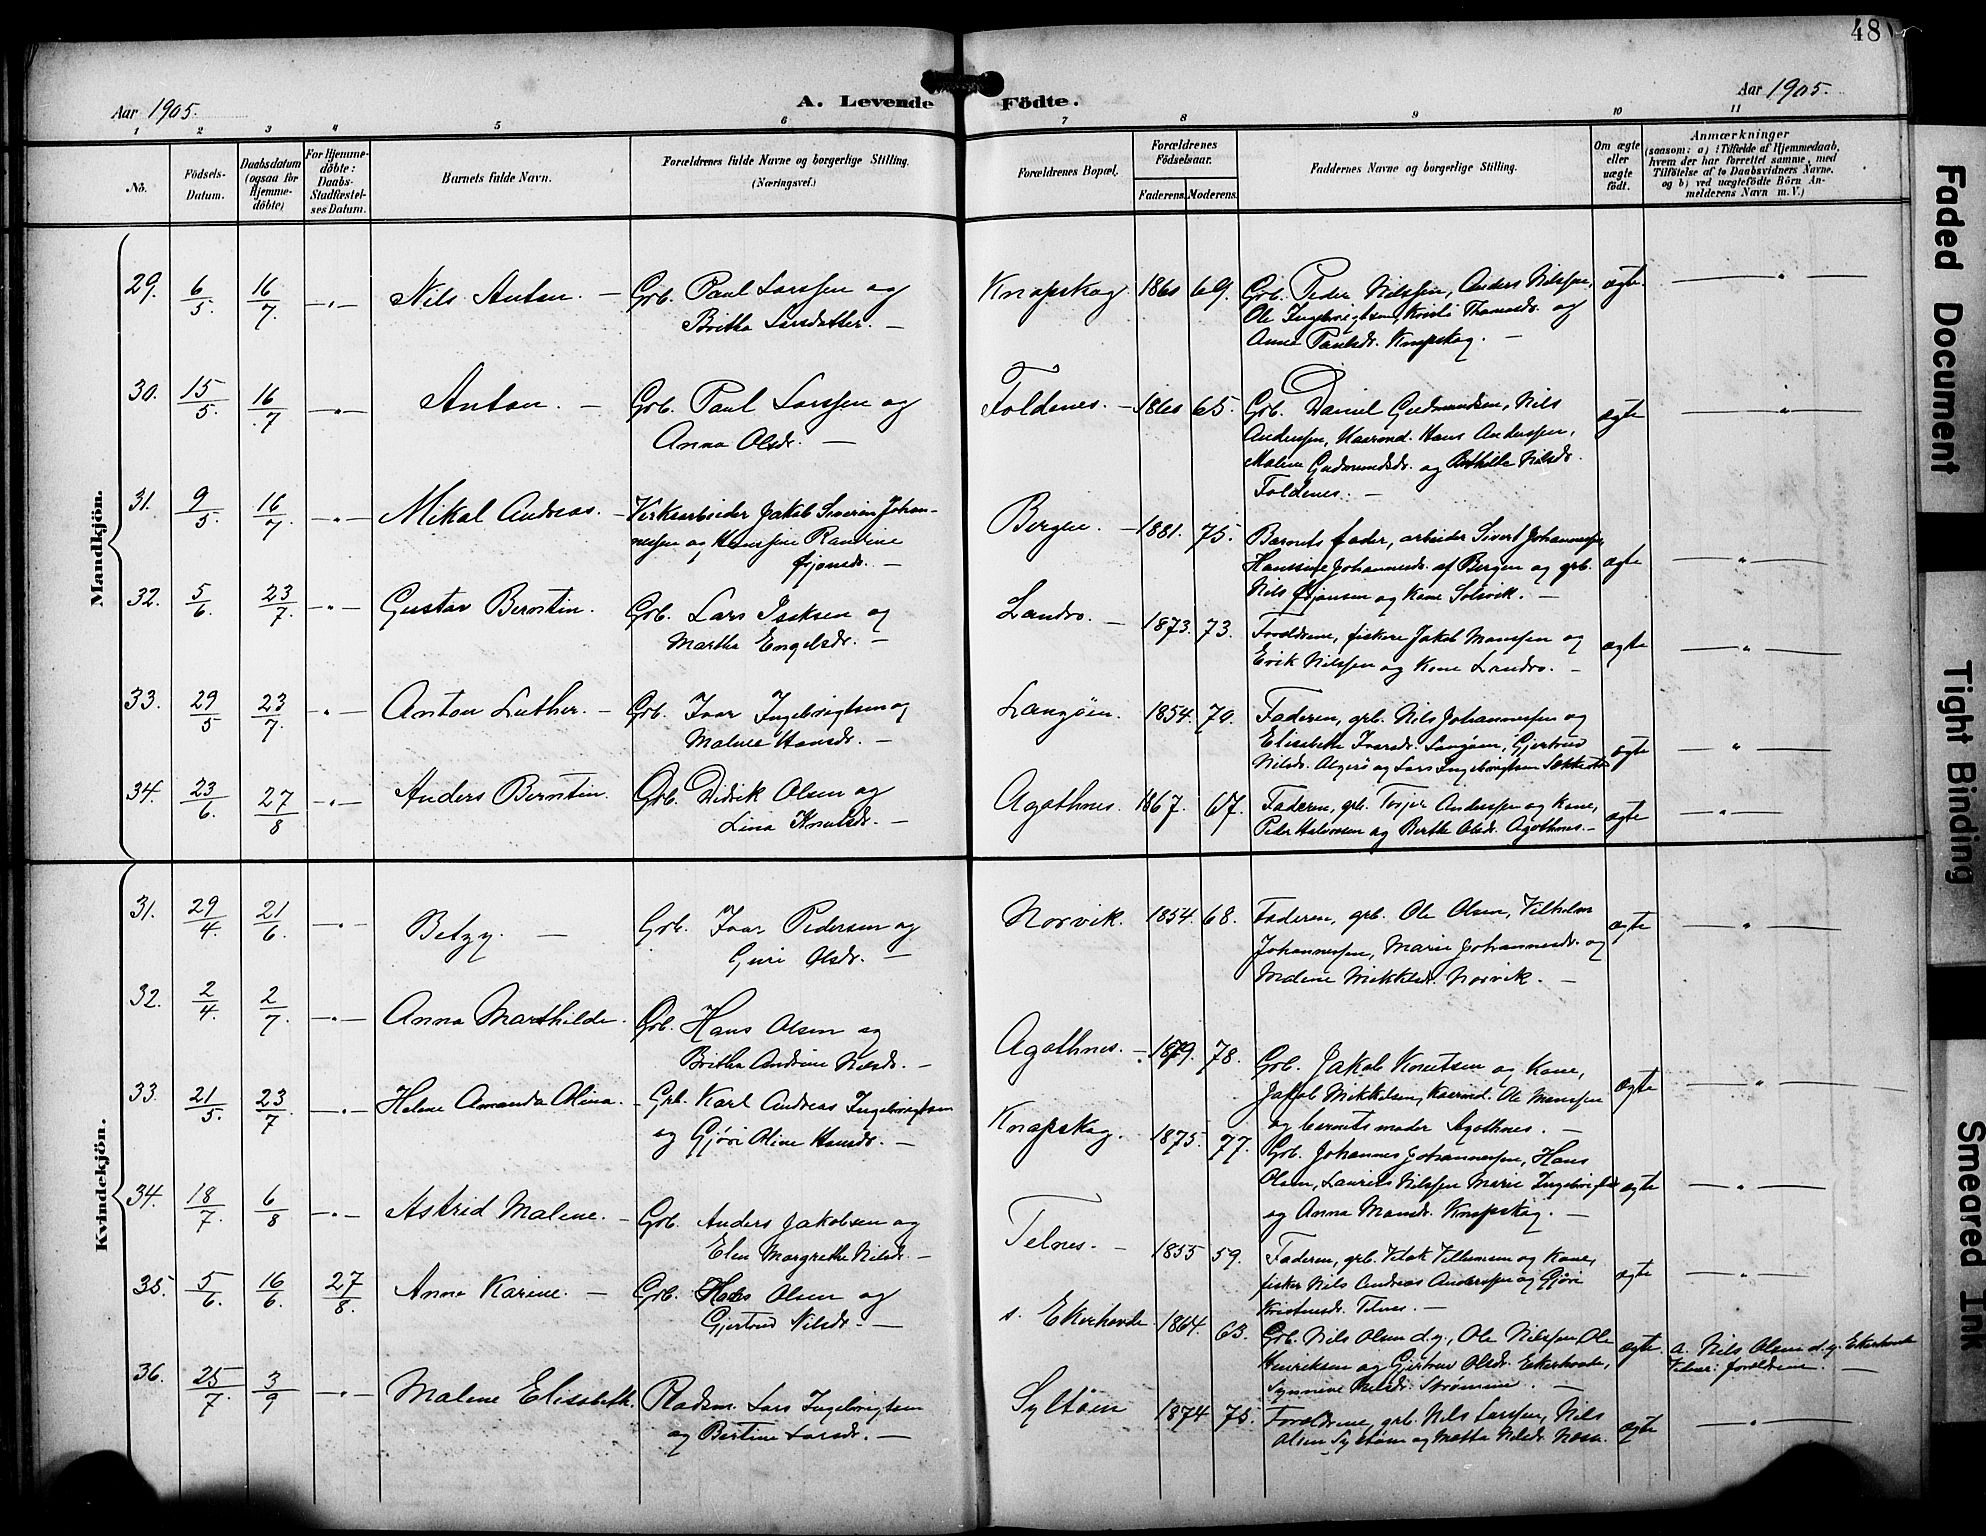 48
Aar 1905.
A. Levende Födte.
Aar 1905.
1 2 3 4 5 6 7 8 9 10 11
No.
Födsels-Datum.
Daabsdatum (ogsaa for Hjemme-döbte)
For Hjemme-döbte: Daabs-Stadfæstel-ses Datum.
Barnets fulde Navn.
Forældrenes fulde Navne og borgerlige Stilling. (Næringsvei.)
Forældrenes Bopæl.
Forældrenes Födselsaar.
Faderens. Moderens.
Faddernes Navne og borgerlige Stilling.
Om ægte eller uægte født.
Anmærkninger
(saasom: a) i Tilfælde af Hjemmedaab,
hvem der har forrettet samme, med
Tilföielse af to Daabsvidners Navne,
og b) ved uægtefödte Börn An-
melderens Navn m. V.)
Mandkjön.
29. 6/5. 16/7 -"- Nils Anton. — Grb. Paul Larssen og
Britha Larsdatter. —
Knapskog. 1860 69. Grb. Peder Nilssen, Anders Nilssen,
Ole Ingebrigtsen, Kristi Thomasdr. og
Anna Paulsdr. Knapskog. —
ægte. — " —
30. 15/5. 16/7 -"- Anton. — Grb. Paul Larssen og
Anna Olsdr. —
Foldenes. — 1860 65. Grb. Daniel Gudmundsen, Nils
Anderssen, Hans Anderssen,
Malene Gudmundsdr. og Nilsdr.
Foldenes. —
ægte — " —
31. 9/5. 16/7. -"- Mikal Andreas. — Verksarbeider Jakob Severin Johan-
nessen og Hansine Rautine
Ørjansdr. —
Bergen. — 1881. 75. Barnets fader, arbeider Sivert Johannessen,
Hanssine Johannesdr. af Bergen og grb.
Nils Ørjansen og Kone Solsvik. —
ægte — " —
32. 5/6. 23/7. -"- Gustav Berntin. Grb. Lars Isaksen og
Martha Engelsdr. —
Landro. — 1873. 73. Forældrene, fiskere Jakob Monssen og
Erik Nilssen og Kone Landro. —
ægte — " —
33. 29/5 23/7. -"- Anton Luther. — Grb. Ivar Ingebrigtsen og
Malene Hansdr. —
Langöen. 1854. 70. Faderen, grb. Nils Johannessen og
Elisabeth Ivarsdr. Langöen, Gjertrud
Nilsdr. Algerö og Lars Ingebrigtsen
ægte — " —
34. 23/6. 27/8 -"- Anders Berntin. Grb. Didrik Olsen og
Lina Knutsdr. —
Agothnes. 1867. 67. Faderen, grb. Torger Anderssen og Kone,
Peder Halvorsen og Berthe Olsdr. Agothnes. —
ægte — " —
Kvindekjön.
31. 29/4. 21/6. -"- Betzy. — Grb. Ivar Pedersen og
Guri Olsdr. —
Norvik. 1854. 68. Faderen, grb. Ole Olsen, Vilhelm
Johannessen, Marie Johannesdr. og
Malene Mikkelsdr. Norvik. —
ægte — " —
32. 2/4. 2/7. -"- Anna Marthilde. Grb. Hans Olsen og
Britha Andrine Nilsdr. —
Agothnes. — 1879. 78. Grb. Jakob Knutsen og Kone,
Jakob Mikkelsen, Ole Monssen
og barnets moder Agothnes. —
ægte — " —
33. 21/5. 23/7 -"- Helene Amanda Olina. — Grb. Karl Andreas Ingebrigtsen
og Gjøri Oline Hansdr. —
Knapskog. 1875. 77. Grb. Johannes Johannessen, Hans
Olsen, Laurits Nilssen Marie
og Anna Monsdr. Knapskog. —
ægte — " —
34. 18/7. 6/8 -"- Astrid Malene. — Grb. Anders Jakobsen og
Elen Margrethe Nilsdr. —
Telnes. — 1855 59. Faderen, grb. Villumsen og Kone,
fisker Nils Andreas Anderssen og Gjøri
Kristensdr. Telnes. —
ægte — " —
35. 5/6. 16/6. 27/8. Anna Karine. — Grb. Hans Olsen og
Gjertrud Nilsdr. —
s. Ekerhovde 1864. 63. Grb. Nils Olsen d.y., Ole Nilssen, Ole
Henriksen og Gjertrud Olsdr. Ekerhovde,
Synneve Nilsdr. Strømme. —
ægte. a. Nils Olsen d.y. Ekerhovde
Vidner: forældrene. —
36. 25/7. 3/9 -"- Malene Elisabeth. Pladsm. Lars Ingebrigtsen
og Bertine Larsdr. —
Syltöen 1874 75. Forældrene, grb. Nils Larssen, Nils
Olsen Syltöen og Metta Nilsdr.
ægte — " —
Faded Document
Tight Binding
Smeared Ink